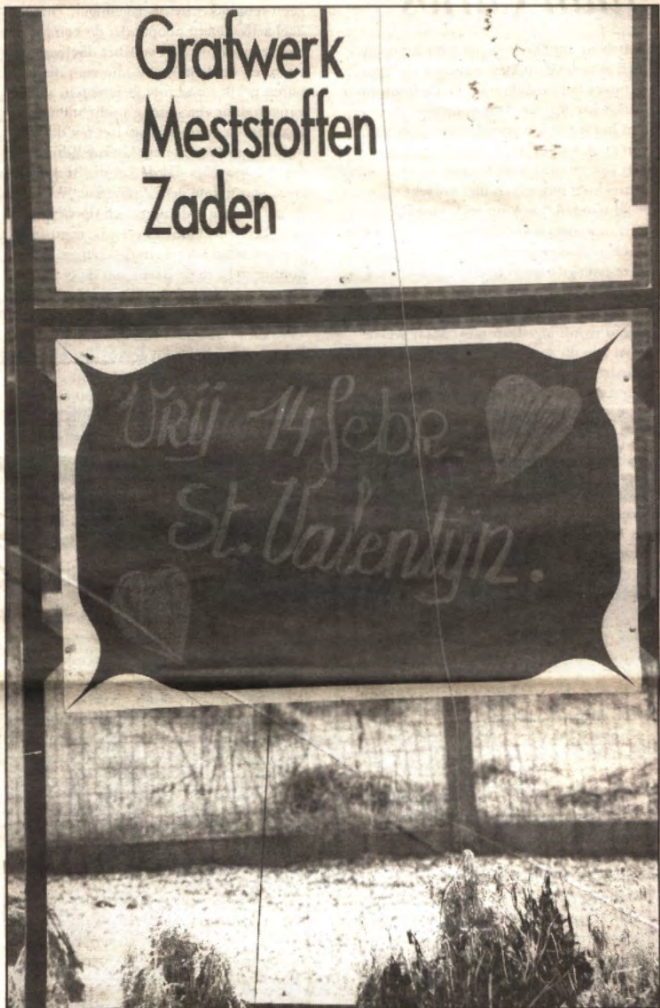 Grafwerk
Meststoffen
Zaden
Vrij 14 febr
St. Valentijn.